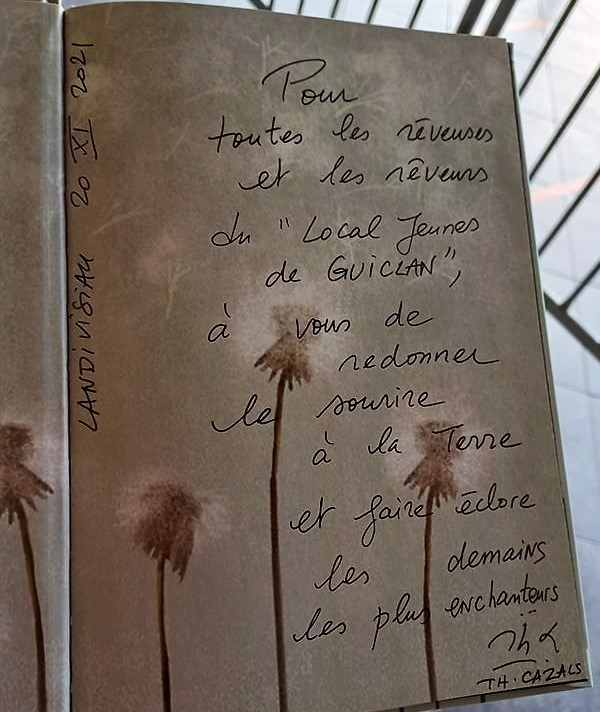 LANDIVISIAU 20 XI 2021
Pour
toutes les rêveuses
et les rêveurs
du "Local Jeunes
de GUICLAN",
à vous de
redonner
le sourire
à la Terre
et faire éclore
les demains
les plus enchanteurs
TH. CAZALS